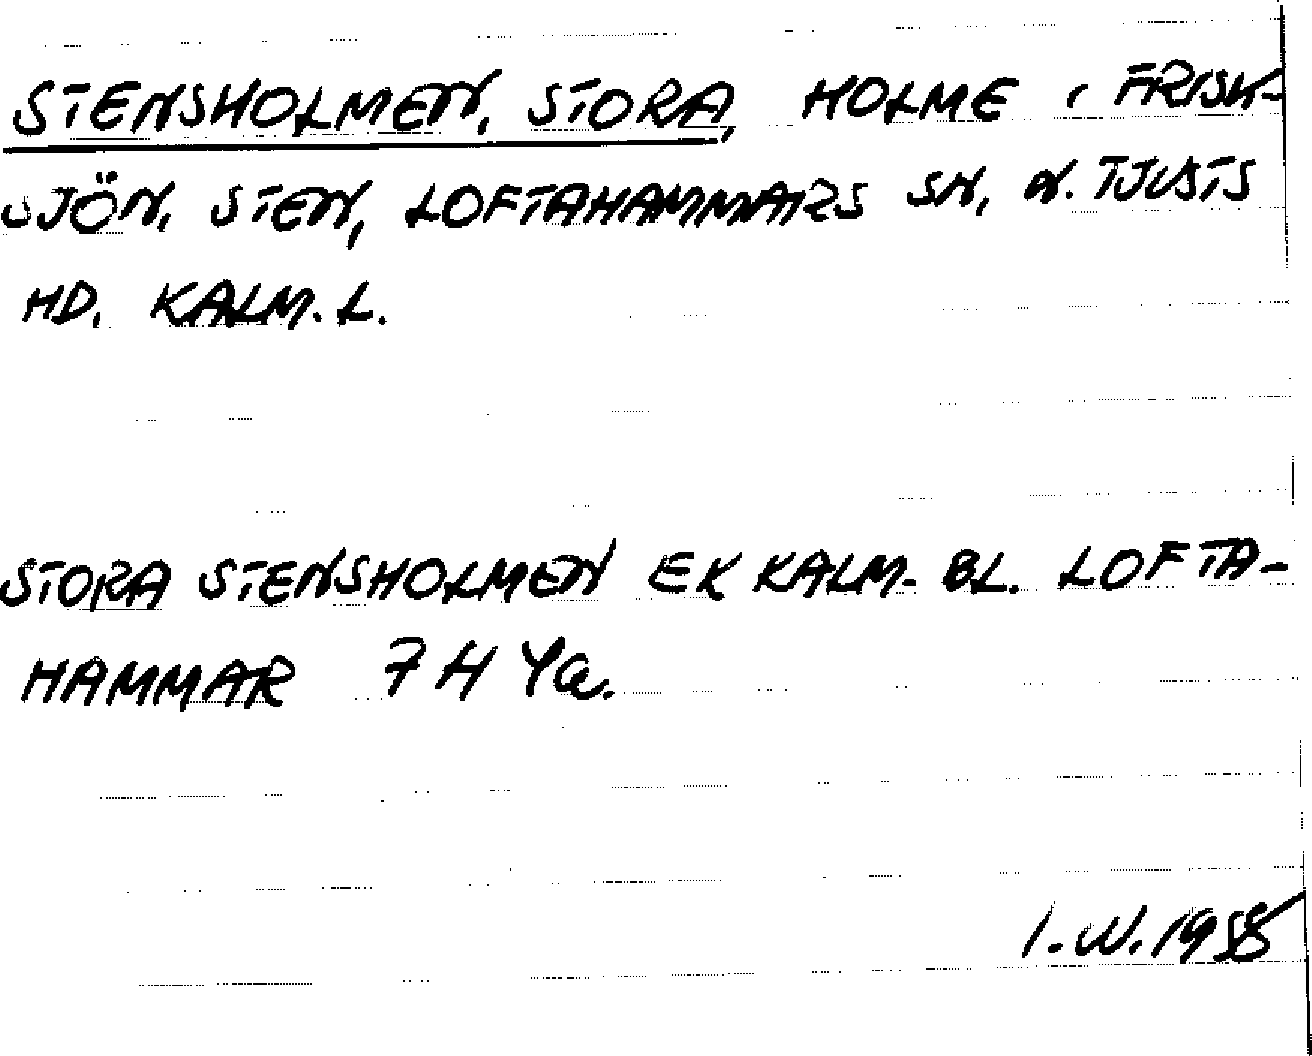 STENSHOLMEN, STORA, HOLME I FRISK-
SJÖN, STEN, LOFTAHAMMARS SN, N. TJUSTS
HD. KALM. L.
STORA STENSHOLMEN EK KALM. BL. LOFTA-
HAMMAR 7 H 4a.
I. W. 1955